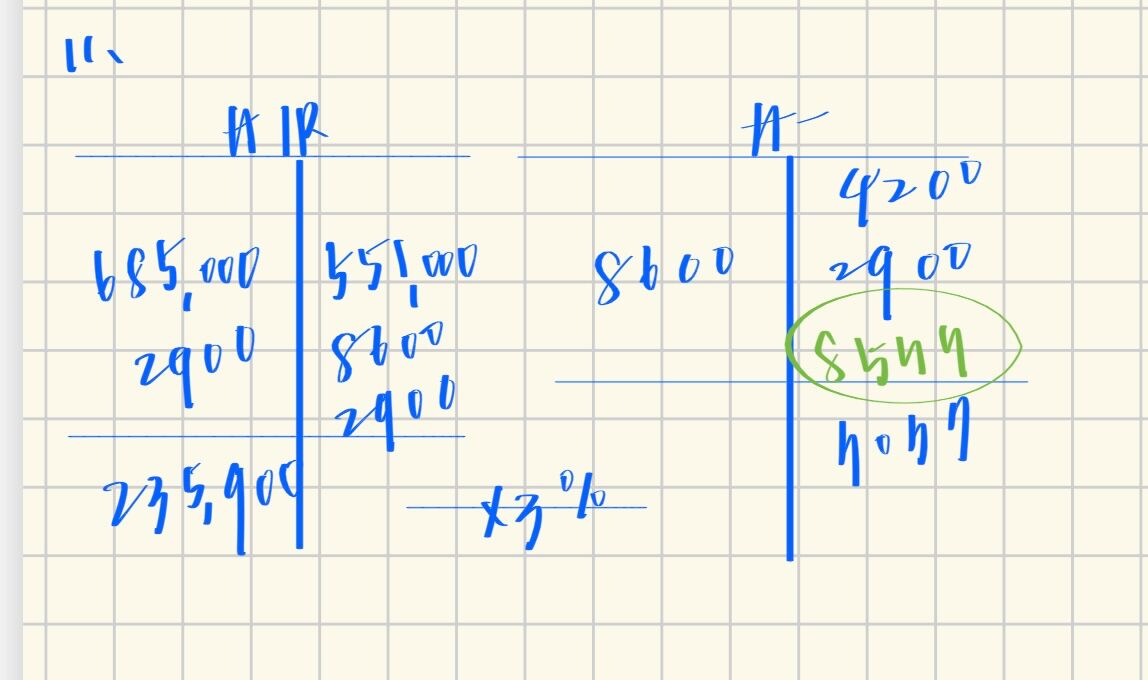 11、
A/R
A-
4200
685,000 551,000 8600 2900
2900 8600 8577
2900
7077
235,900 x3%